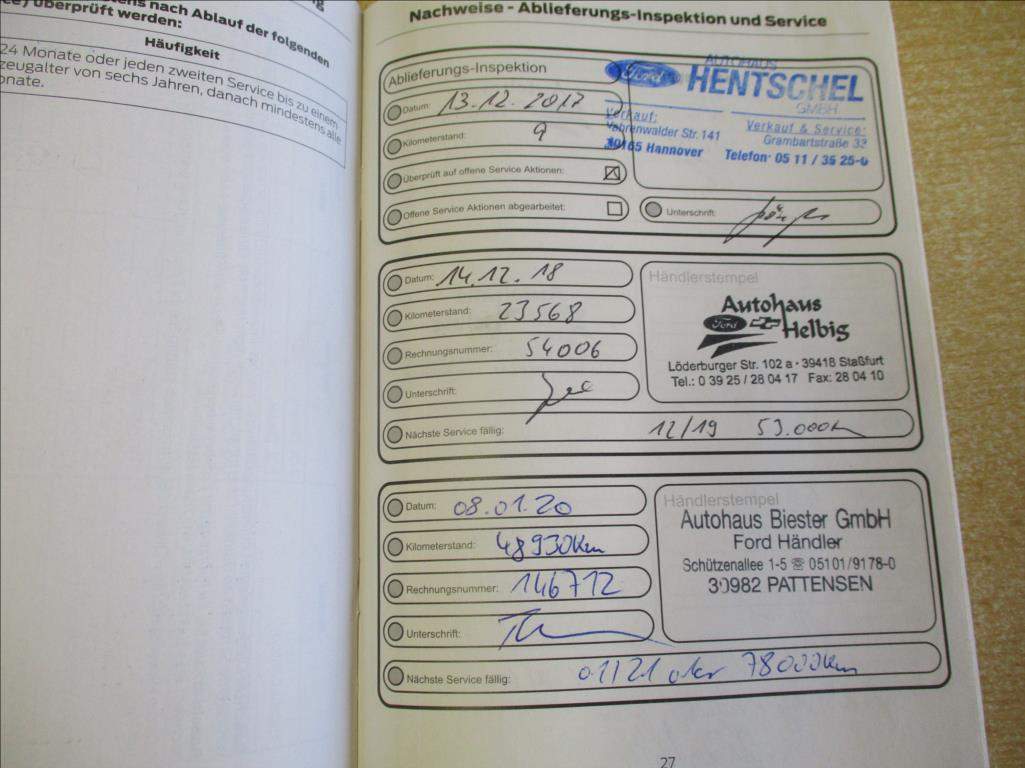 tens nach Ablauf der folgenden
ce) überprüft werden:
Häufigkeit
24 Monate oder jeden zweiten Service bis zu einem
zeugalter von sechs Jahren, danach mindestens alle
onate.
Nachweise - Ablieferungs-Inspektion und Service
Ablieferungs-Inspektion
Datum: 13.12.2017
Kilometerstand: 9
Überprüft auf offene Service Aktionen:
Offene Service Aktionen abgearbeitet:
AUTOHAUS
Ford HENTSCHEL
GMBH
Verkauf: Verkauf & Service:
Vahrenwalder Str. 141 Grambartstraße 33
30165 Hannover Telefon 05 11 / 35 25-0
Unterschrift:
Datum: 14.12.18
Kilometerstand: 23568
Rechnungsnummer: 54006
Unterschrift:
Nächste Service fällig: 12/19 53.000km
Händlerstempel
Autohaus
Ford Helbig
Löderburger Str. 102 a · 39418 Staßfurt
Tel.: 0 39 25 / 28 04 17 Fax: 28 04 10
Datum: 08.01.20
Kilometerstand: 48930km
Rechnungsnummer: 146712
Unterschrift:
Nächste Service fällig: 01/21 oder 78000km
Händlerstempel
Autohaus Biester GmbH
Ford Händler
Schützenallee 1-5 ☏ 05101/9178-0
30982 PATTENSEN
27